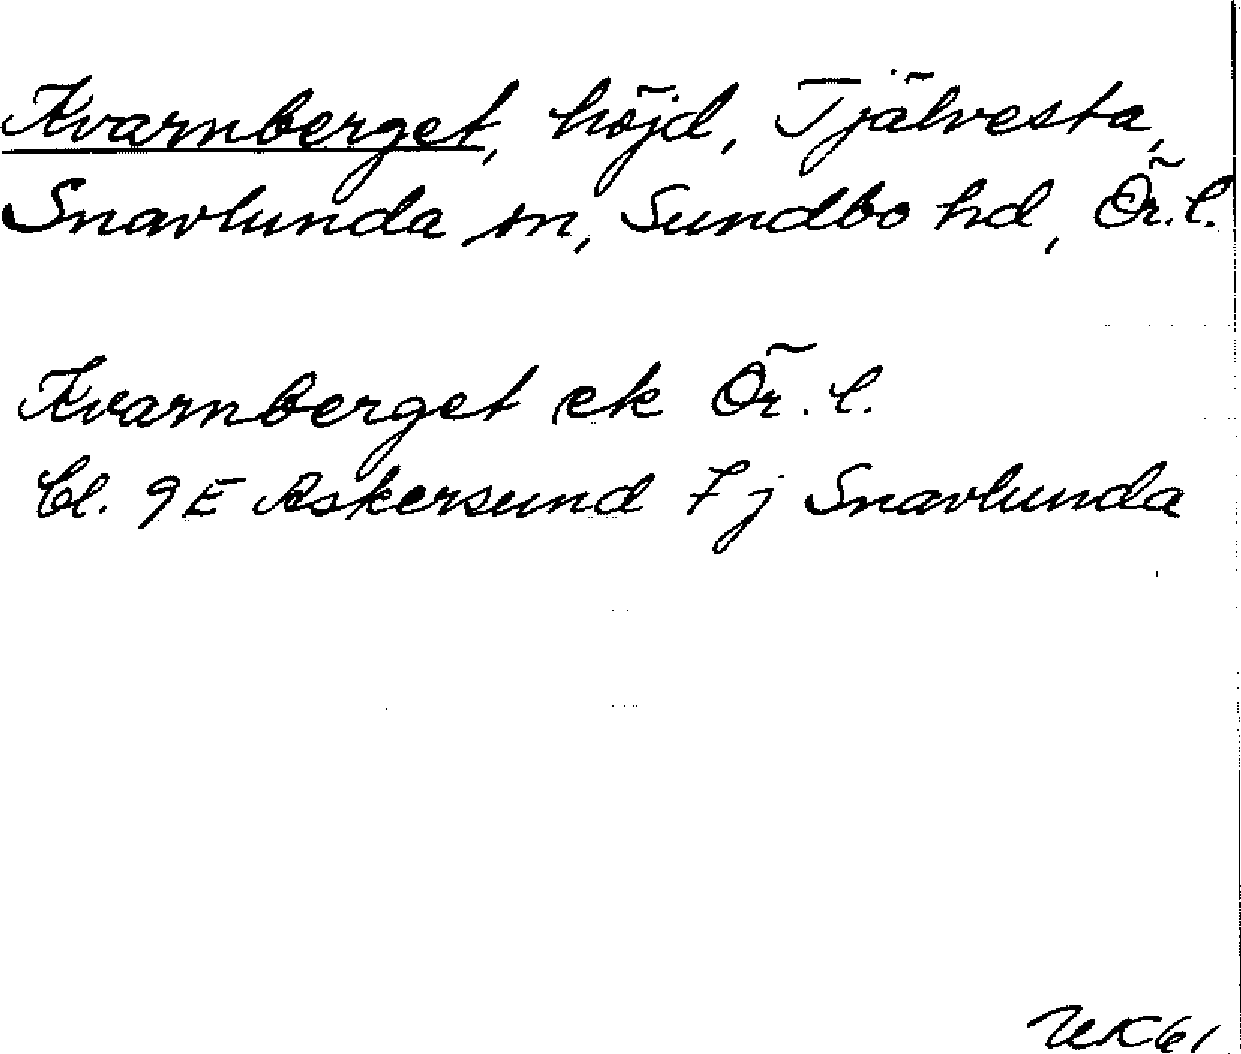 Kvarnberget, höjd, Tjälvesta,
Snavlunda sn, Sundbo hd, Ör. l.
Kvarnberget ek Ör. l.
Bl. 9E Askersund 7j Snavlunda
61